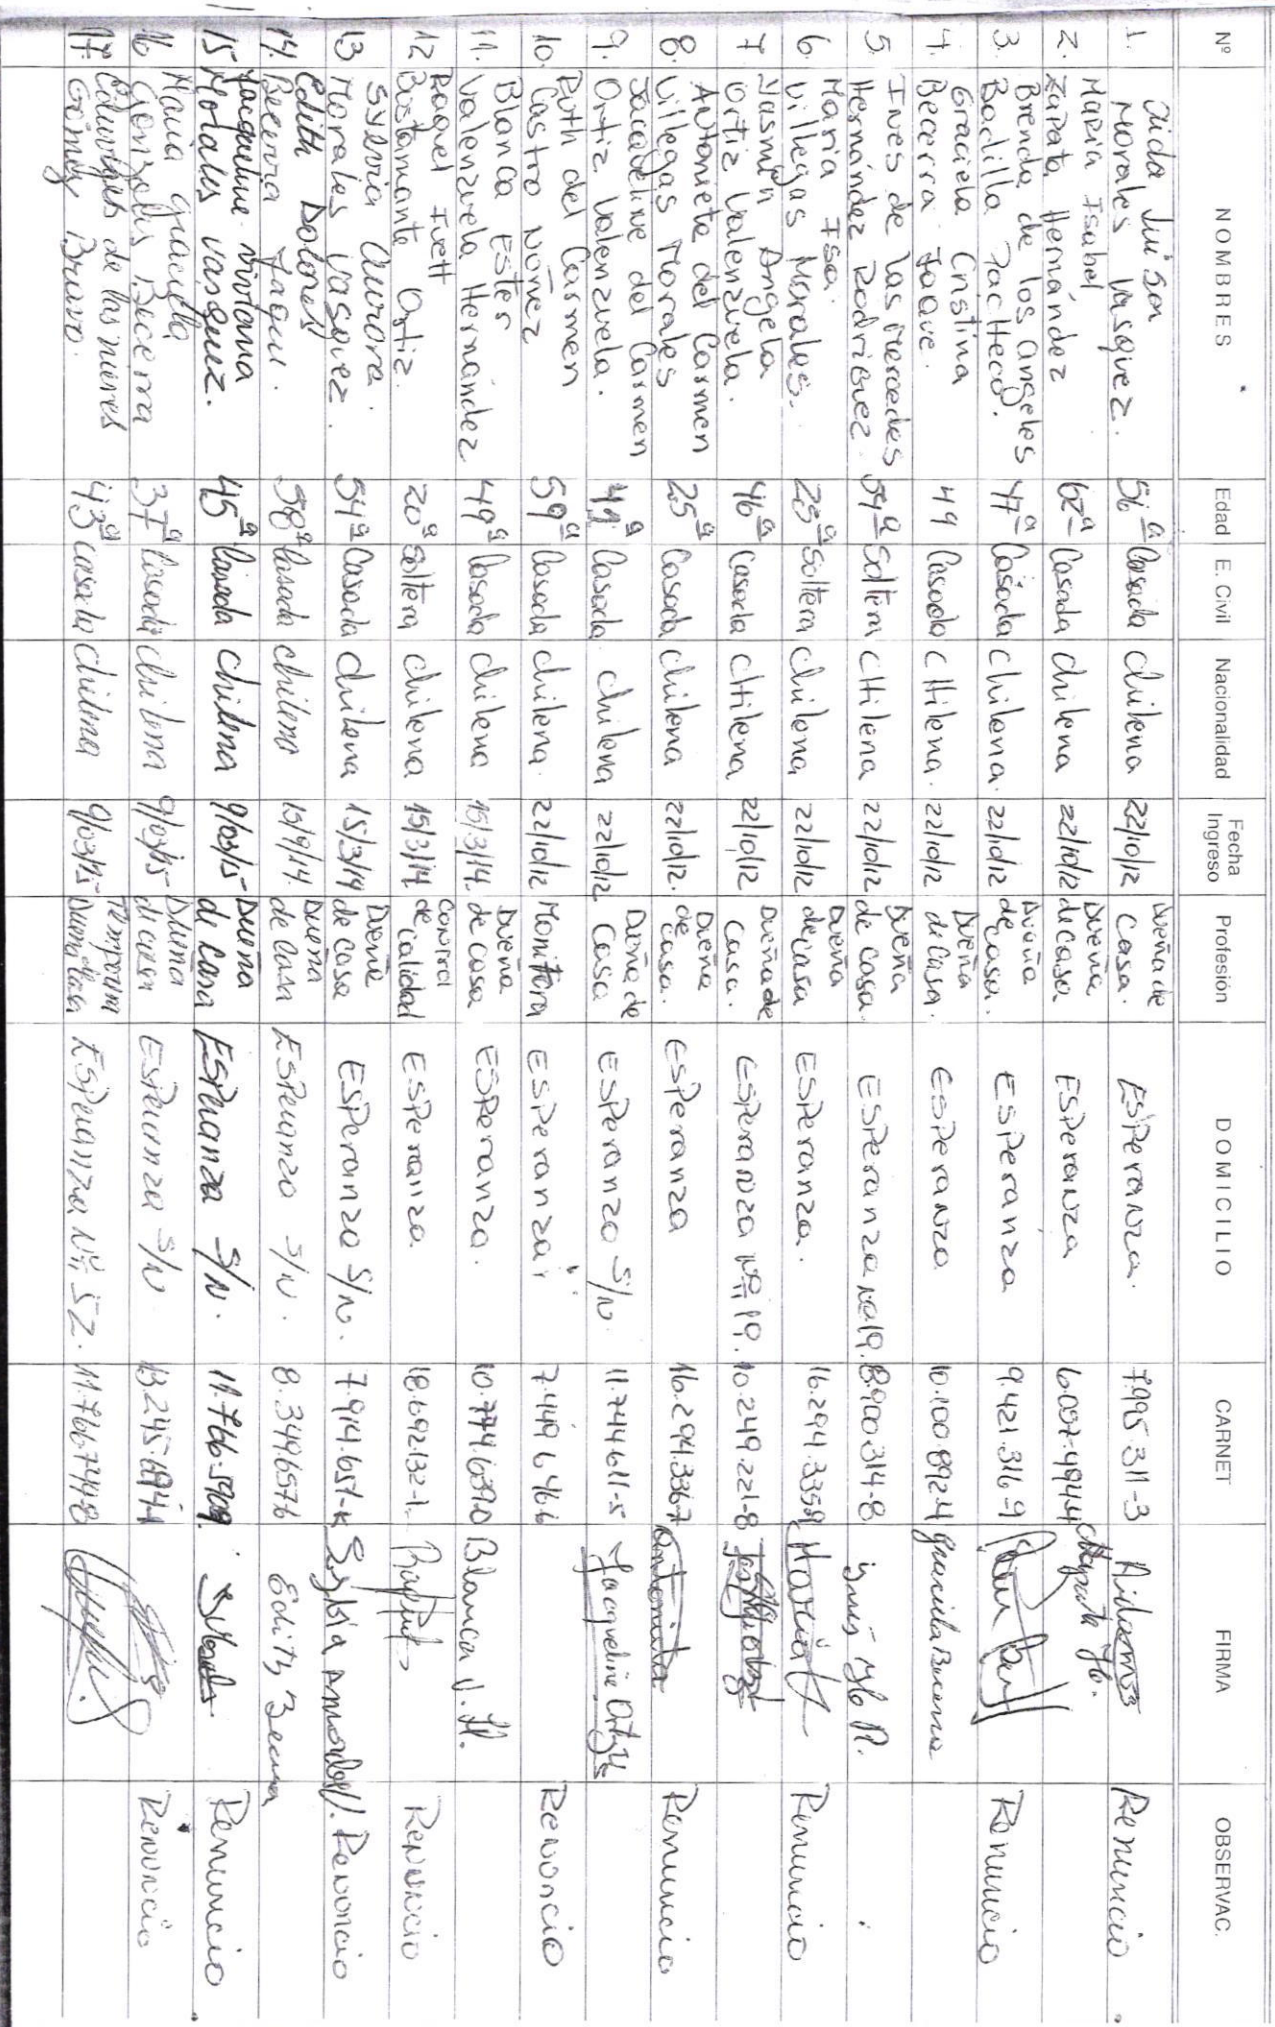 Nº NOMBRES Edad E. Civil Nacionalidad Fecha Ingreso Profesión DOMICILIO CARNET FIRMA OBSERVAC.
1. Aida Luisa Morales Vasquez. 56ª Casada chilena 22/10/12 Dueña de Casa. Esperanza. 7.995.311-3 Renuncio
2. Maria Isabel Zapata Hernández 62ª Casada chilena 22/10/12 Dueña de casa Esperanza 6.057.494-4
3. Brenda de los angeles Badilla Pacheco. 47ª Casada chilena. 22/10/12 Dueña de casa. Esperanza 9.421.316-9 Renuncio
4. Graciela Cristina Becerra Faave. 49 Casada CHilena. 22/10/12 Dueña de Casa. Esperanza 10.100.892-4 Graciela Becerra
5. Ines de las Mercedes Hernández Rodriguez. 54ª Soltera CHilena 22/10/12 Dueña de Casa. Esperanza Nº19. 8.900.314-8
6. Maria Isa. Villegas Morales. 25ª Soltera chilena 22/10/12 Dueña de casa Esperanza. 16.294.335-9 Maria Renuncio
7 Yasmin Angela Ortiz Valenzuela. 46ª Casada CHilena 22/10/12 Dueña de Casa. Esperanza Nº 19. 10.249.221-8
8. Antoniete del Carmen Villegas Morales 25ª Casada chilena 22/10/12. Dueña de casa. Esperanza 16.294.336-7 Antonieta Renuncia
9. Jacqueline del Carmen Ortiz Valenzuela. Casada. chilena 22/10/12 Dueña de Casa Esperanza S/N. 11.744.611-5 Jacqueline Ortiz
10. Ruth del Carmen Castro Núñez 59ª Casada chilena. 22/10/12 Monitora Esperanza 7.449.646-6 Renuncio
11. Blanca Ester Valenzuela Hernández 49ª Casada chilena 15/3/14. Dueña de casa Esperanza. 10.774.639-0 Blanca V. H.
12 Raquel Ivett Bustamante Ortiz. 20ª Soltera chilena 15/3/14. Control de calidad Esperanza. 18.692.132-1. Renuncio
13 Sylvia Aurora. Morales Vasquez. 54ª Casada chilena 15/3/14 Dueña de casa Esperanza S/N. 7.914.651-K Sylvia Renuncio
14. Edith Dolores Becerra 58ª Casada chilena 15/9/14. Dueña de Casa Esperanza S/N. 8.349.657-6 Edith Becerra
15 Jaqueline Viviana Morales Vasquez. 45ª Casada chilena 9/03/15 Dueña de Casa Esperanza S/N. Renuncio
16 Maria Graciela Gonzales Becerra 37ª Casada chilena 9/03/15 Dueña di casa Esperanza S/N Renuncio
17. Eduviges de las nieves Gómez Bravo. 43ª Casada chilena 9/03/15 Temporera Dueña de Casa Esperanza Nº 52. 11.766.744-8